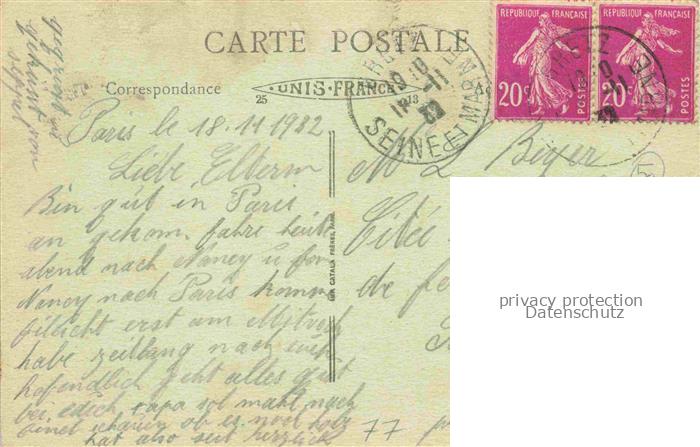 CARTE POSTALE
Correspondance
UNIS-FRANCE
25
13
REPUBLIQUE FRANÇAISE
20c
POSTES
REPUBLIQUE FRANÇAISE
20c
POSTES
SEINE ET MARNE
Paris le 18.11 1932
Liebe Eltern
Bin gut in Paris
an gekom. fahre heute
abend nach Nancy u fon
Nancy nach Paris komme
fileicht erst am Mitvoch
habe zeitlang nach euch
hofendlich geht alles gut
bei eich papa sol mahl nach
ob er noch
hat also seit herzlich
gegrüst
gekünst
seppel von
M L Beyer
Cité
de
77
EDIA CATALA FRÈRES, PARIS
privacy protection
Datenschutz